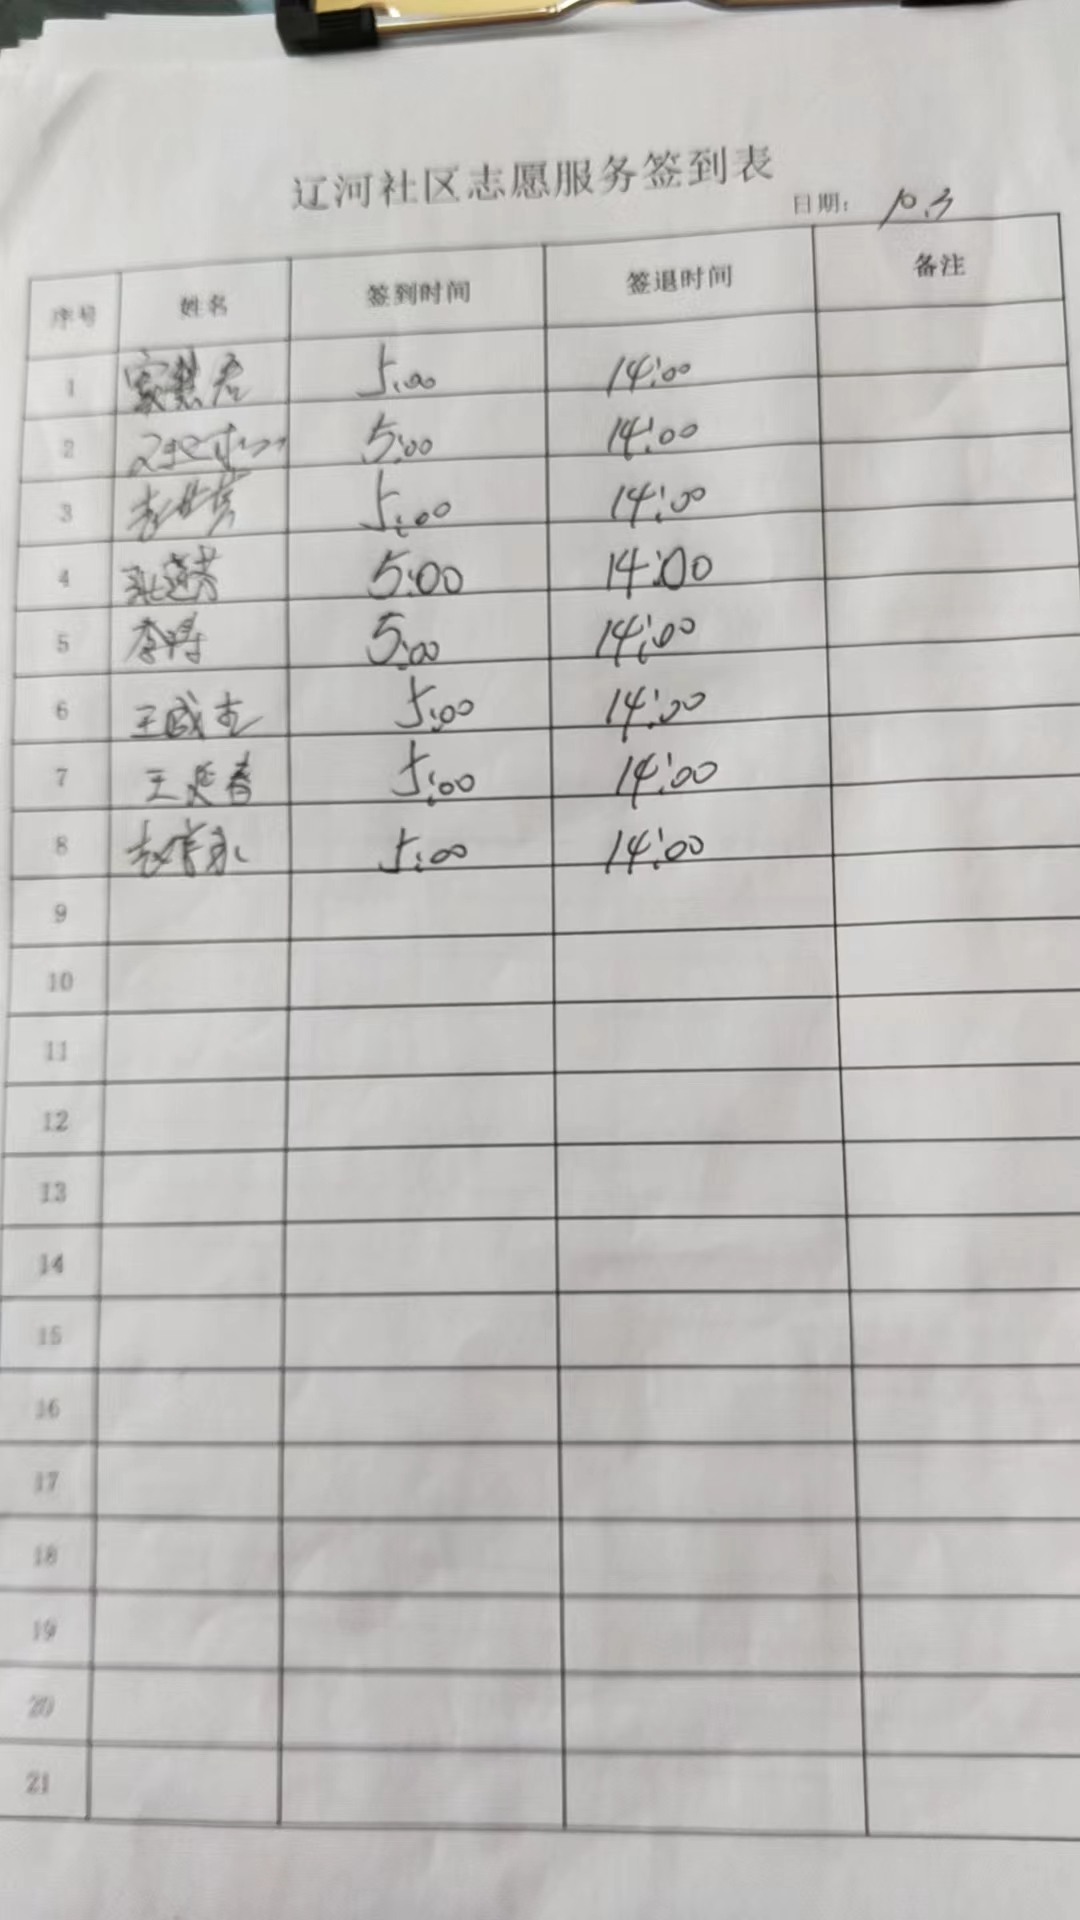 辽河社区志愿服务签到表
日期: 10.3
序号 姓名 签到时间 签退时间 备注
1 5:00 14:00
2 5:00 14:00
3 5:00 14:00
4 张莲芳 5:00 14:00
5 5:00 14:00
6 王成 5:00 14:00
7 王延春 5:00 14:00
8 5:00 14:00
9
10
11
12
13
14
15
16
17
18
19
20
21